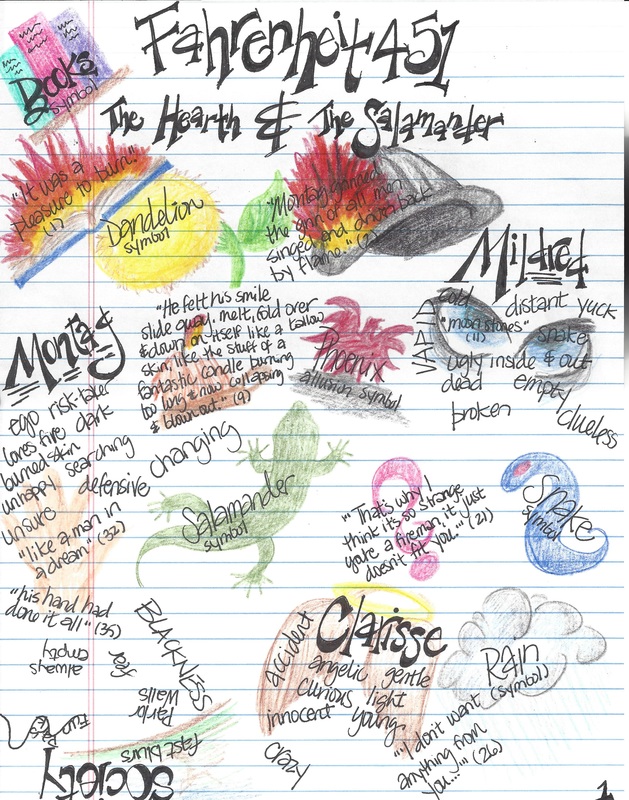 Fahrenheit 451
Books
symbol
The Hearth & The Salamander
"It was a
pleasure to burn."
(1)
Dandelion
symbol
"Montag grinned
the grin of all men
singed and driven back
by flame." (2)
Mildred
cold
distant yuck
"moon stones"
(11)
snake
VAPID
ugly inside & out
dead
empty
broken
clueless
Montag
ego risk-taker
loves fire dark
burned skin
unhappy searching
unsure
defensive
changing
"like a man in
a dream" (32)
"He felt his smile
slide away, melt, fold over
& down on itself like a tallow
skin, like the stuff of a
fantastic candle burning
too long & now collapsing
& blown out." (9)
Phoenix
allusion symbol
Salamander
symbol
"That's why I
think it's so strange
you're a fireman, it just
doesn't fit you..." (21)
Snake
symbol
"his hand had
done it all" (35)
always
empty
BLACKNESS
fear
Parlor
Walls
fast blurs
Fun Parks
Society
Clarisse
accident
angelic gentle
curious light
innocent young
crazy
Rain
(symbol)
"I don't want
anything from
you..." (26)
1